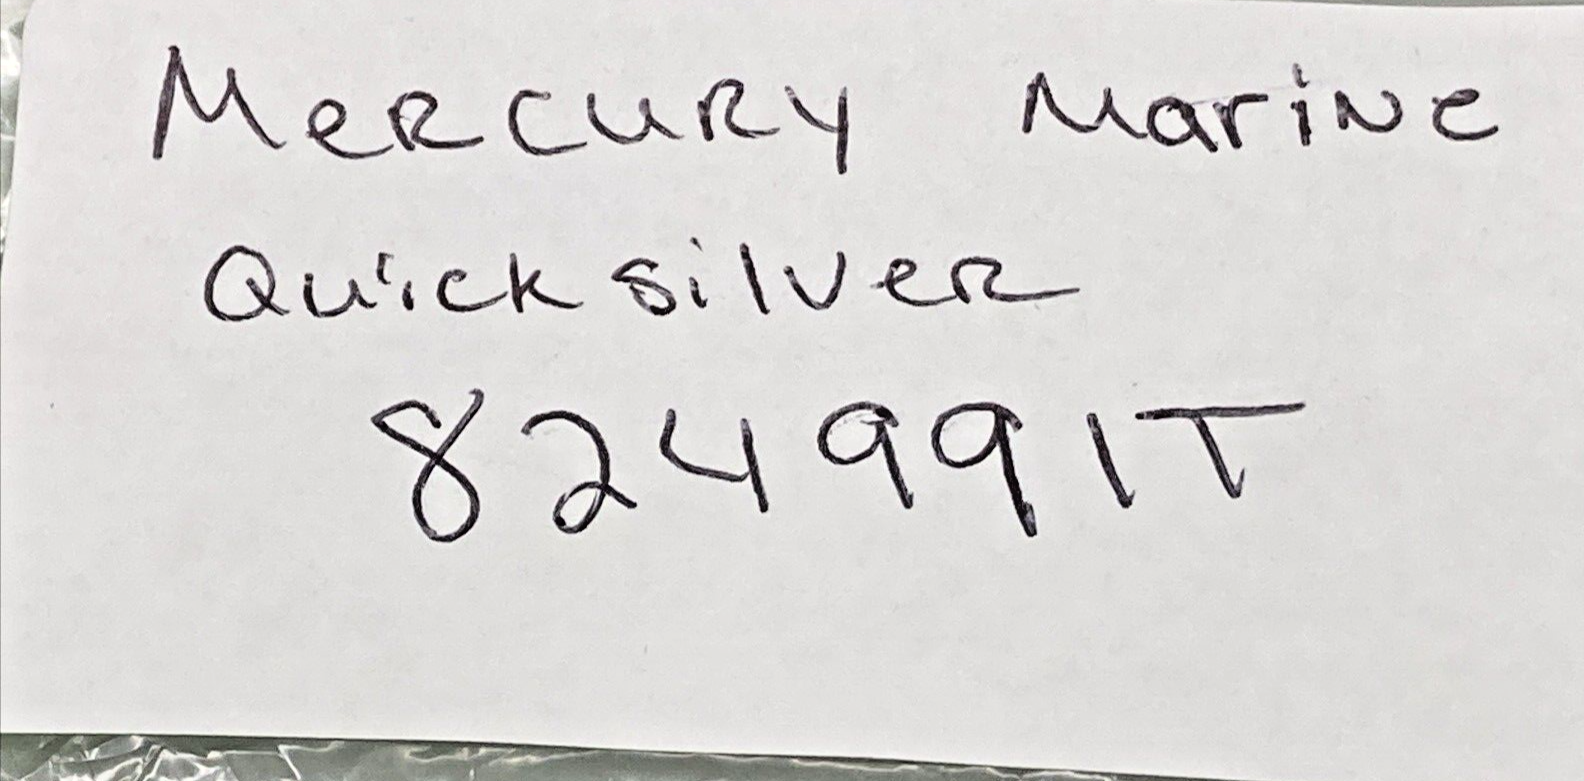 Mercury Marine
Quicksilver
824991T